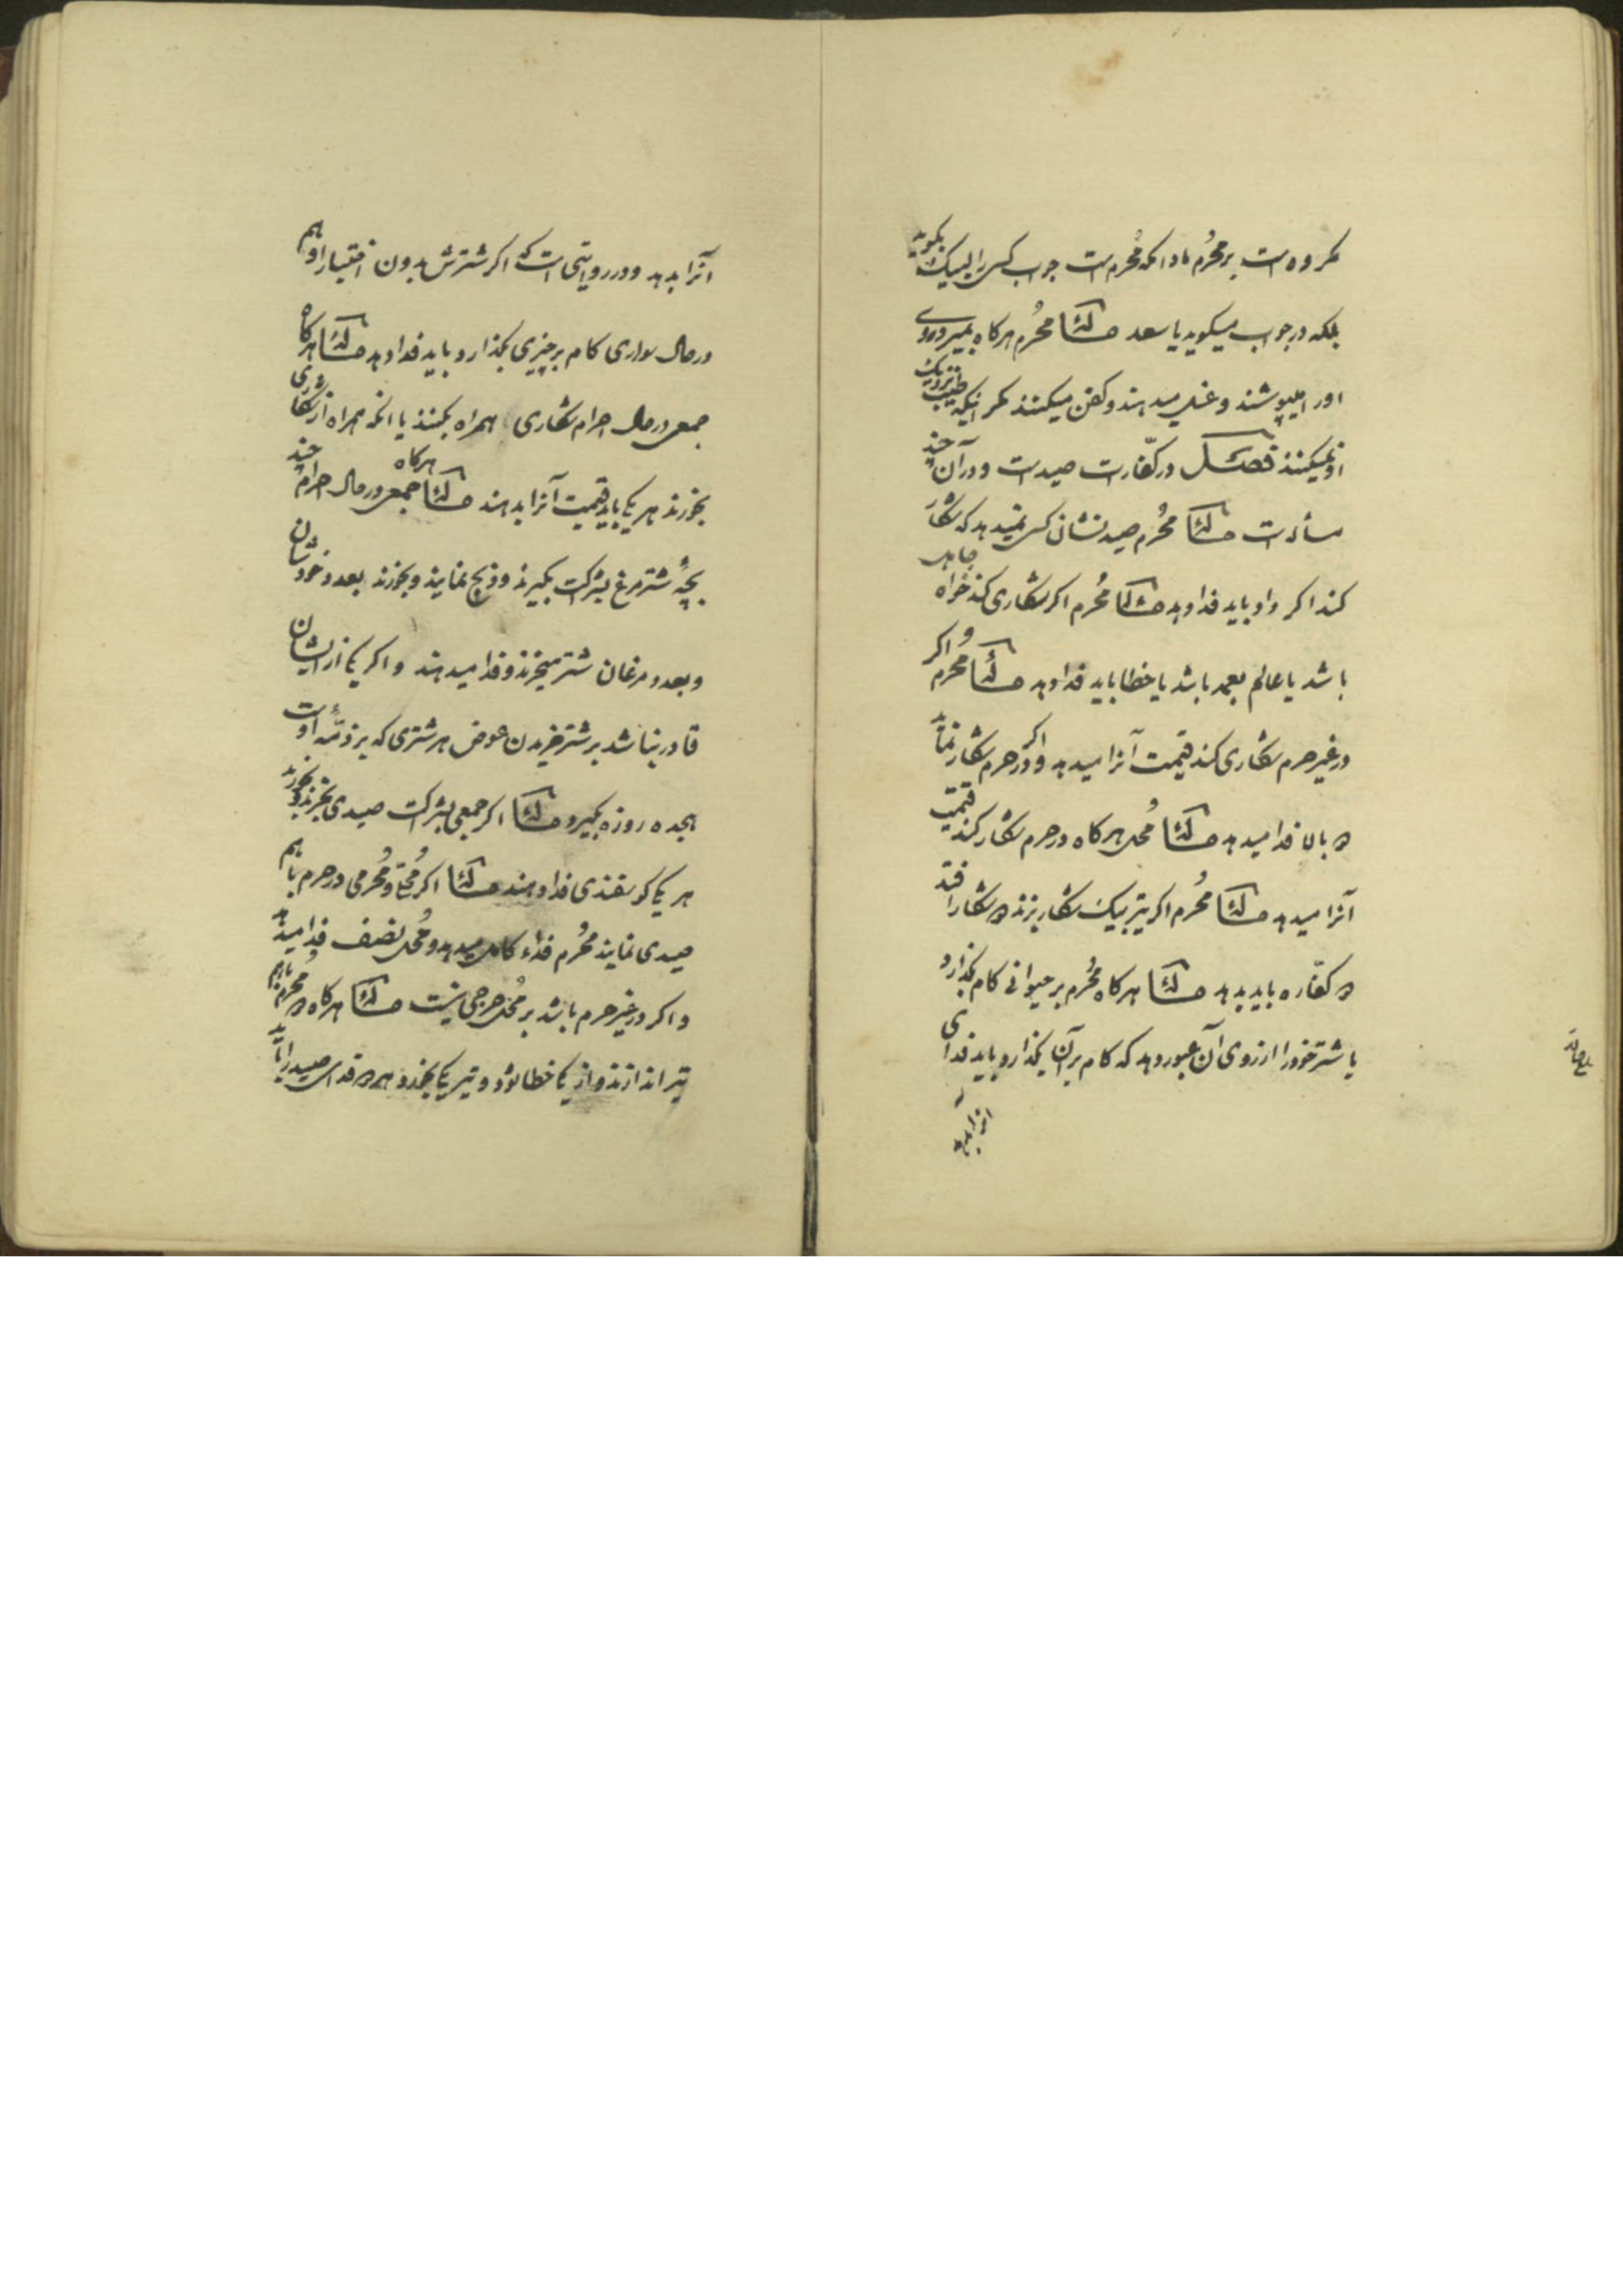 مکروه است بر محرم مادامکه محرم است جواب کسی را لبیک بگوید
بلکه در جواب میگوید یا سعد مسئلة محرم هرگاه بمیرد روی
او را میپوشند و غسل میدهند و کفن میکنند مگر اینکه طیب نزدیک
او نمیکنند فصل در کفارت صید است و در آن چند
مسأله است مسئلة محرم صید نشان کسی نمیدهد که شکار
کند اگر داد باید فدا دهد مسئلة محرم اگر شکاری کند خواه جاهل
باشد یا عالم بعمد باشد یا خطا باید فدا دهد مسئلة و اگر محرم
در غیر حرم شکاری کند قیمت آنرا میدهد و اگر در حرم شکار نماید
بالا فدا میدهد مسئلة محل هرگاه در حرم شکار کند قیمت
آنرا میدهد مسئلة محرم اگر تیر بیک شکار بزند شکار افتد
کفاره باید بدهد مسئلة هرگاه محرم بر حیوانی کام بگذارد
یا شتر خود را از روی آن عبور دهد که کام بر آن بگذارد باید فدای
انرا بدهد
آنرا بدهد و در روایتی است که اگر شترش بدون اختیار او هم
در حال سواری کام بر چیزی بگذارد باید فدا دهد مسئلة هرگاه
جمعی در حال احرام شکاری همراه بکنند یا انکه همراه از شکاری
بخورند هر یک باید قیمت آنرا بدهند مسئلة هرگاه جمعی در حال احرام چند
بچه شتر مرغ بشرکت بگیرند و ذبح نمایند و بخورند بعدد خودشان
و بعدد مرغان شتر میخرند و فدا میدهند و اگر یکی از ایشان
قادر نباشد بر شتر خریدن عوض هر شتری که بر ذمه اوست
هجده روزه بگیرد مسئلة اگر جمعی بشرکت صیدی بخرند و بخورند
هر یکی گوسفندی فدا دهند مسئلة اگر محلی و محرمی در حرم با هم
صیدی نمایند محرم فداء کامل میدهد و محل نصف فدا میدهد
و اگر در غیر حرم باشد بر محل حرجی نیست مسئلة هرگاه محرم با هم
تیر اندازند و از یکی خطا شود و تیر یکی بخورد هر فدای صید را باید